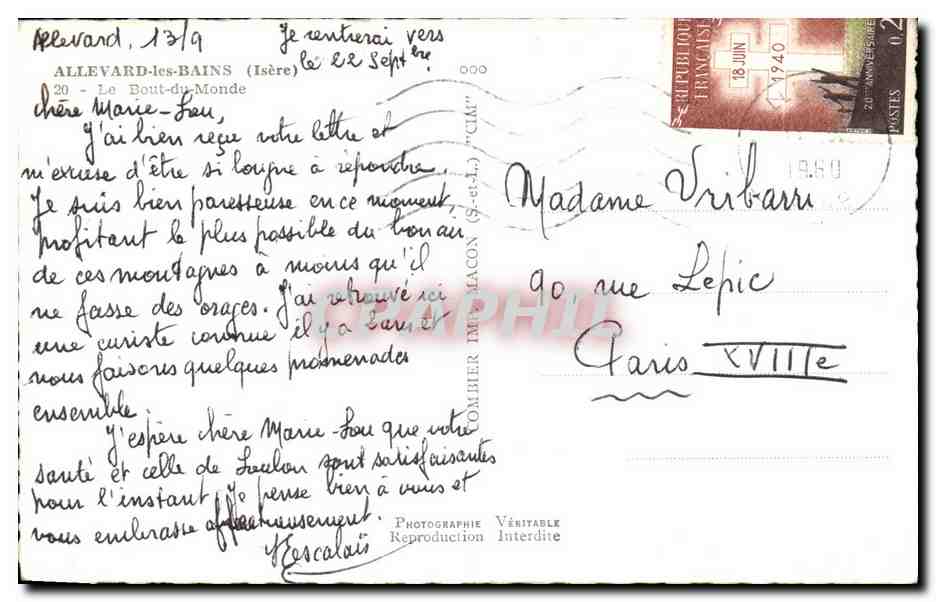 Allevard, 13/9
Je rentrerai vers
le 22 Septbre.
ALLEVARD-les-BAINS (Isère)
20 - Le Bout-du-Monde
Chère Marie-Lou,
J'ai bien reçue votre lettre et
m'excuse d'être si longue à répondre.
Je suis bien paresseuse en ce moment
profitant le plus possible du bon air
de ces montagnes à moins qu'il
ne fasse des orages. J'ai retrouvé ici
une curiste connue il y a 2 ans et
nous faisons quelques promenades
ensemble.
J'espère chère Marie-Lou que votre
santé et celle de Loulou sont satisfaisantes
pour l'instant. Je pense bien à vous et
vous embrasse affectueusement.
Escalaïs
COMBIER IMP. MACON (S.-et-L.) "CIM"
PHOTOGRAPHIE VÉRITABLE
Reproduction Interdite
REPUBLIQUE
FRANÇAISE
18 JUIN
1940
20ème ANNIVERSAIRE
POSTES
0,2
1960
Madame Uribarri
90, rue Lepic
Paris XVIIIe
CRAPHIL